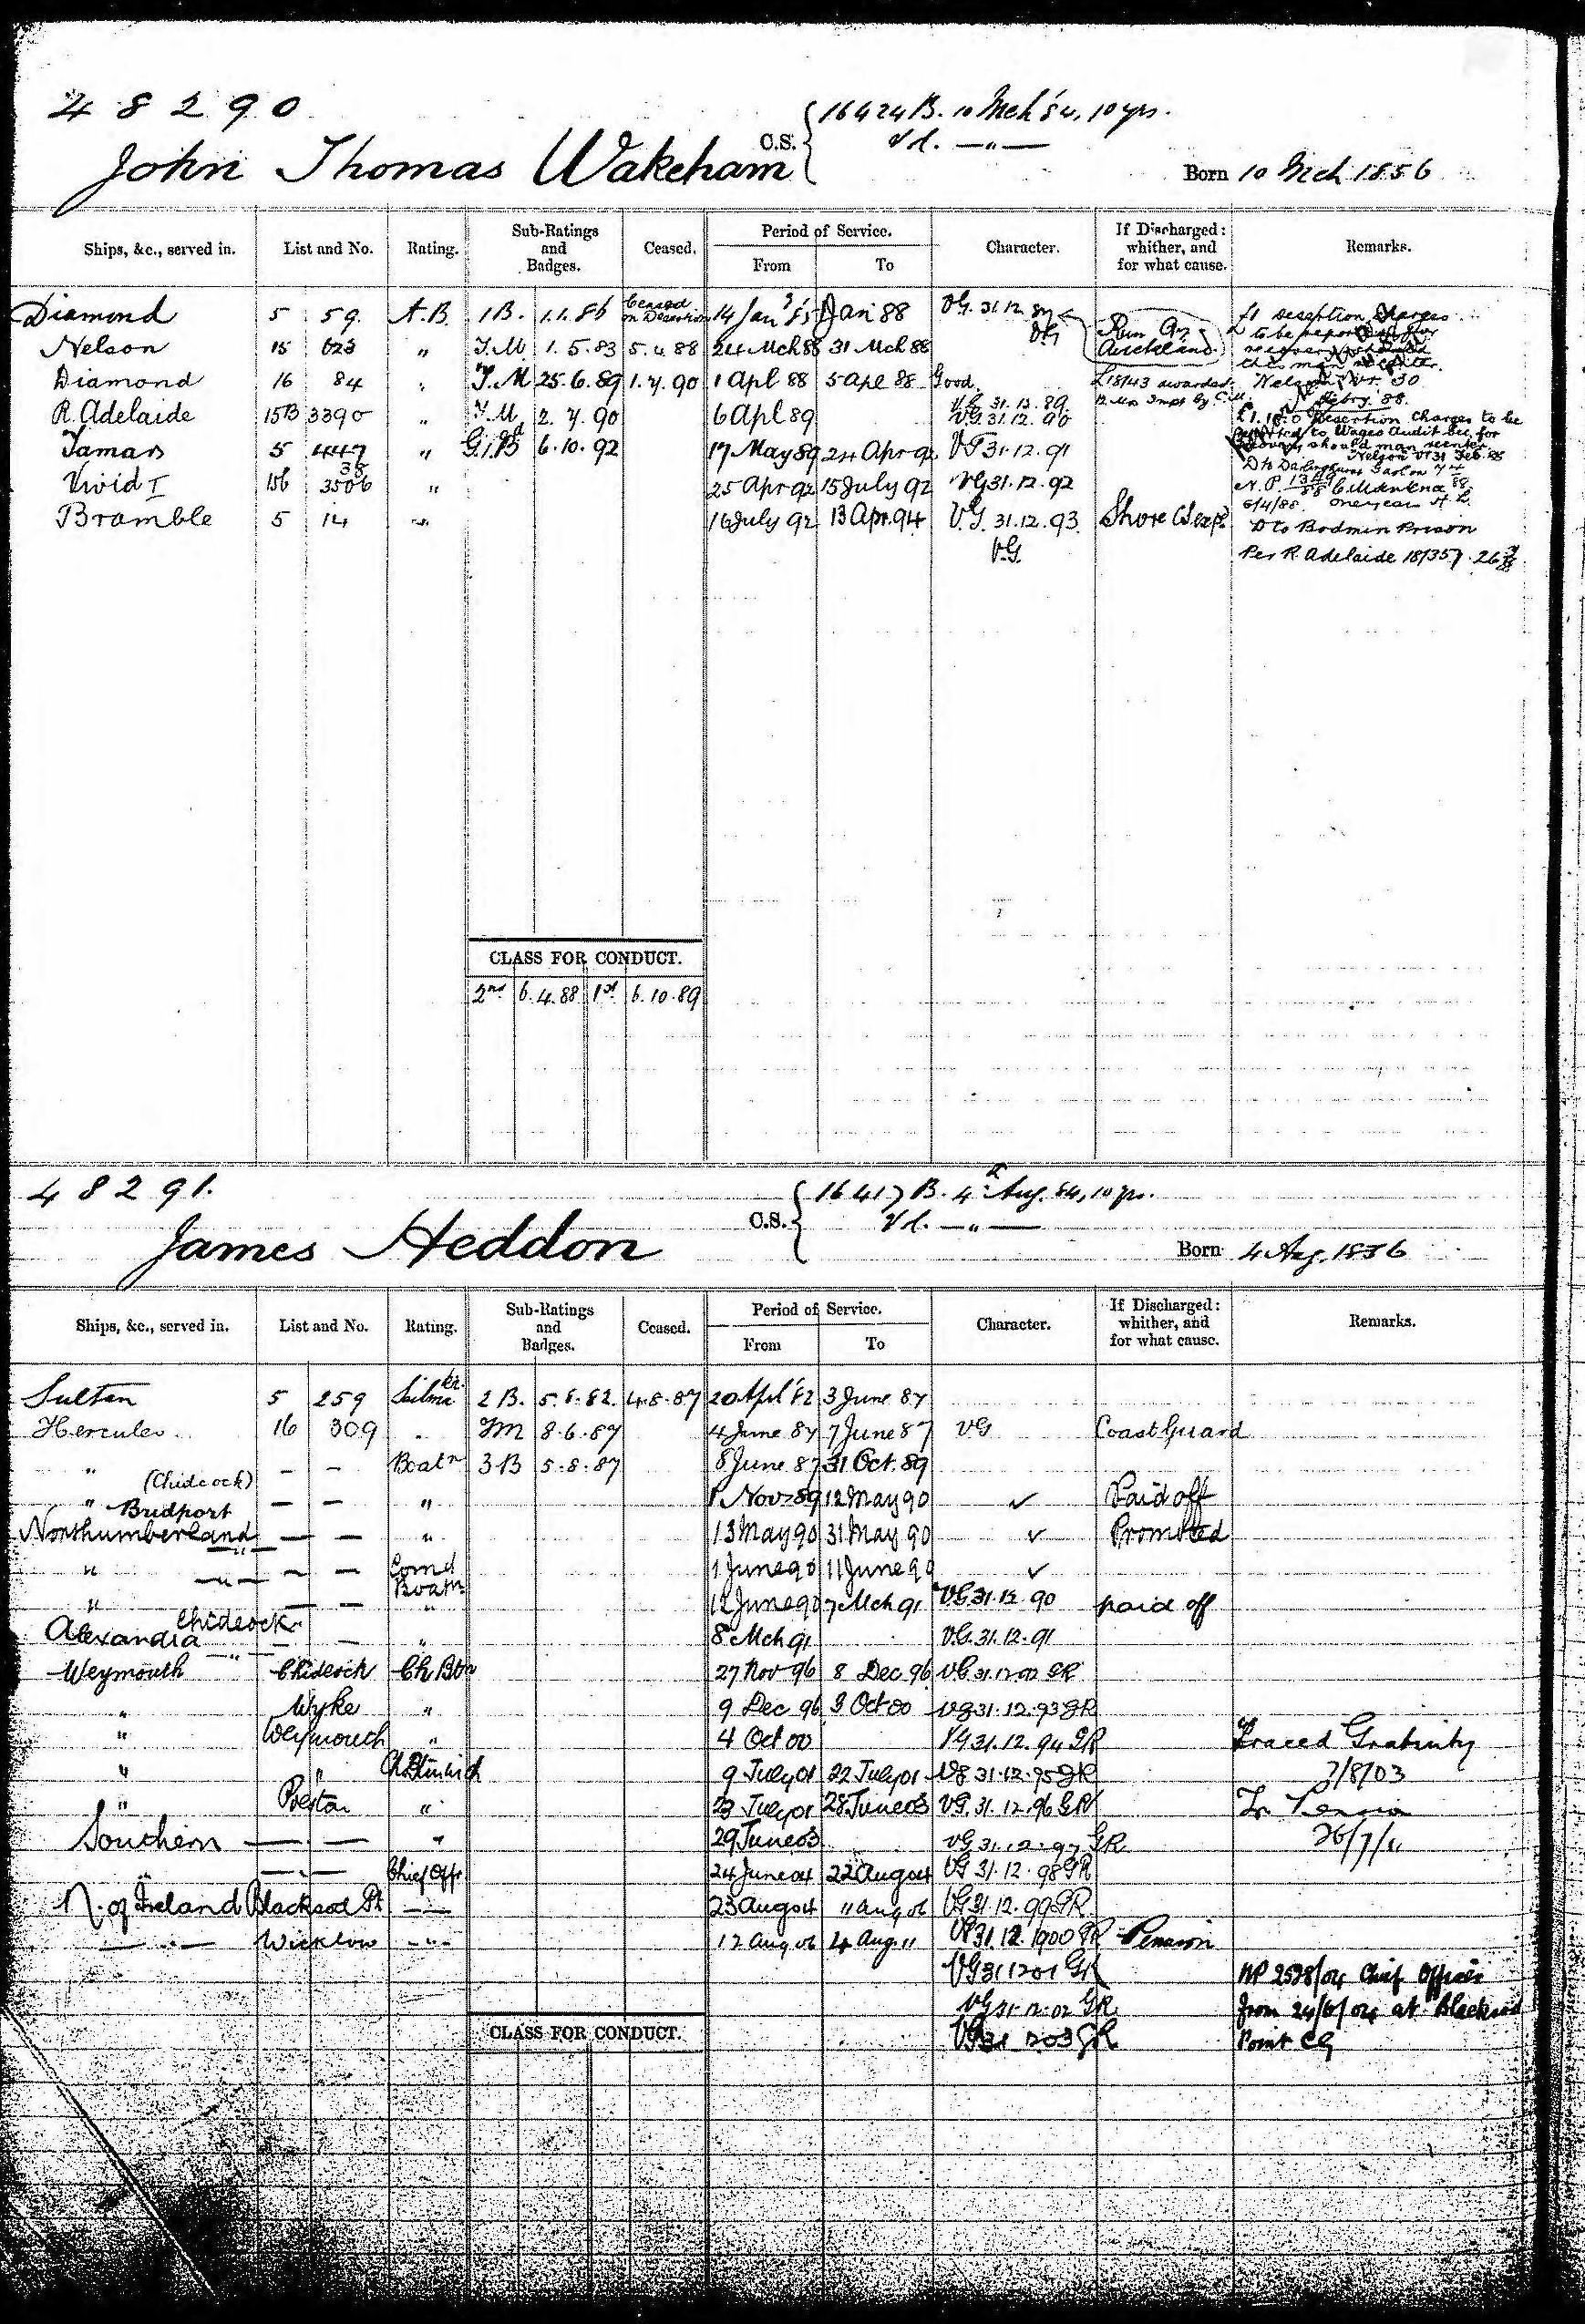 48290
John Thomas Wakeham
C.S. { 16424 B. 10 Mch '84, 10 yrs.
Vd. —"—
Born 10 Mch 1856
Ships, &c., served in. List and No. Rating. Sub-Ratings and Badges. Ceased. Period of Service. From To Character. If Discharged: whither, and for what cause. Remarks.
Diamond 5 59 A.B. 1 B. 1.1.86 Ceased on Desertion 14 Jan 85 Jan 88 VG. 31.12. VG Run Auckland £1 Desertion Charges
Nelson 15 623 " T.M 1.5.83 5.4.88 24 Mch 88 31 Mch 88 to be
Diamond 16 84 " T.M 25.6.89 1.7.90 1 Apl 88 5 Apl 88 Good. awarded this man Nelson 30
R. Adelaide 15B 3390 " T.M 2.7.90 6 Apl 89 VG 31.12.89 VG. 31.12.90 Febry 88. Desertion Charges to be
Tamar 5 447 " G.1.B 6.10.92 17 May 89 24 Apr 92 VG 31.12.91 to Wages Audit for should man
Vivid I 15b 3506 38 " 25 Apr 92 15 July 92 VG 31.12.92 D to Gaol on
Bramble 5 14 " 16 July 92 13 Apr. 94 V.G. 31.12.93 Shore CS exp. 6/4/88 One year H.L.
V.G. D to Bodmin Prison
Per R. Adelaide
CLASS FOR CONDUCT.
2nd 6.4.88 1st 6.10.89
48291.
James Heddon
C.S. { 16417 B. 4 Aug. 84, 10 yrs.
Vd. —"—
Born 4 Aug. 1856
Ships, &c., served in. List and No. Rating. Sub-Ratings and Badges. Ceased. Period of Service. From To Character. If Discharged: whither, and for what cause. Remarks.
Sultan 5 259 2 B. 5.8.82. 4.8.87 20 Apl '82 3 June 87
Hercules 16 309 " TM 8.6.87 4 June 87 7 June 87 VG Coast Guard
" (Chidcock) — — Boatn 3 B 5.8.87 8 June 87 31 Oct. 89
" Bridport — — " 1 Nov 89 12 May 90 ✓ Paid off
Northumberland — — " 13 May 90 31 May 90 ✓ Promoted
" —"— — — Comd Boatn 1 June 90 11 June 90 ✓
" —"— — — " 12 June 90 7 Mch 91 VG 31.12.90 paid off
Alexandra Chideock — — " 8 Mch 91 V.G. 31.12.91
Weymouth —"— Chideock Ch Btn 27 Nov 96 8 Dec 96 VG 31.12.92 GR
" Wyke " 9 Dec 96 3 Oct 00 VG 31.12.93 GR
" Weymouth " 4 Oct 00 VG 31.12.94 GR Traced Gratuity
" " 9 July 01 22 July 01 VG 31.12.95 GR 7/8/03
" Preston " 23 July 01 28 June 03 VG. 31.12.96 GR Tr. Pension
Southern — — " 29 June 03 VG 31.12.97 GR 26/7/11
" — — Chief Offr 24 June 04 22 Aug 04 VG 31.12.98 GR
N. of Ireland Blacksod Pt —"— 23 Aug 04 11 Aug 06 VG 31.12.99 GR
—"— Wicklow —"— 12 Aug 06 4 Aug. 11 VG 31.12.1900 GR Pension
VG 31 12 01 GR NP 2528/04 Chief Officer
VG 31.12.02 GR from 24/6/04 at Blacksod
CLASS FOR CONDUCT. VG 31 12 03 GR Point CG